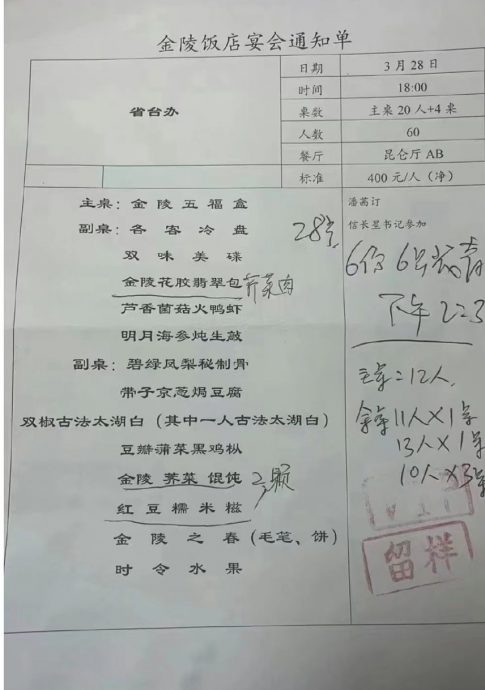 金陵饭店宴会通知单
省台办
日期 3月28日
时间 18:00
桌数 主桌20人+4桌
人数 60
餐厅 昆仑厅AB
标准 400元/人（净）
主桌：金陵五福盒
副桌：各客冷盘
双味美碟
金陵花胶翡翠包 荠菜肉
芦香菌菇火鸭虾
明月海参炖生敲
副桌：碧绿凤梨秘制骨
带子京葱焗豆腐
双椒古法太湖白（其中一人古法太湖白）
豆瓣蒲菜黑鸡枞
金陵 荠菜 馄饨 2颗
红豆糯米糍
金陵之春（毛笔、饼）
时令水果
潘茜订
信长星书记参加
6份 6
下午 223
主桌=12人
11人×1桌
13人×1桌
10人×3桌
留样